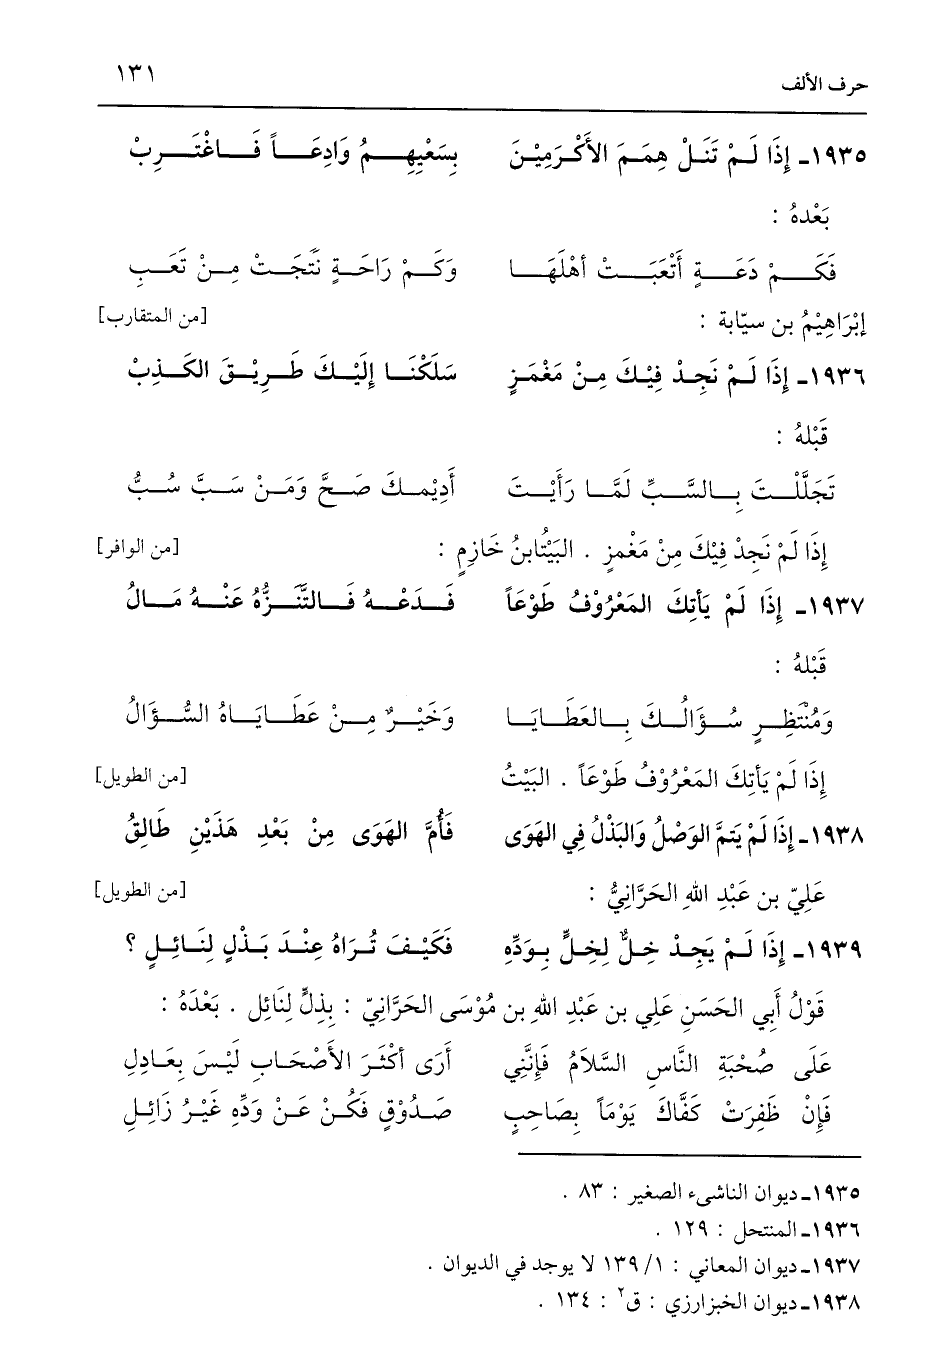 حرف الألف ١٣١
١٩٣٥ـ إِذَا لَمْ تَنَلْ هِمَمَ الأَكْرَمِيْنَ بِسَعْيِهِمُ وَادِعَاً فَاغْتَرِبْ
بَعْدهُ :
فَكَمْ دَعَةٍ أَتْعَبَتْ أهْلَهَا وَكَمْ رَاحَةٍ نُتِجَتْ مِنْ تَعَبِ
إبْرَاهِيْمُ بن سيّابة : [من المتقارب]
١٩٣٦ـ إِذَا لَمْ نَجِدْ فِيْكَ مِنْ مَغْمَزٍ سَلَكْنَا إِلَيْكَ طَرِيْقَ الكَذِبْ
قَبْلهُ :
تَجَلَّلْتَ بِالسَّبِّ لَمَّا رَأَيْتَ أَدِيْمكَ صَحَّ وَمَنْ سَبَّ سُبُّ
إِذَا لَمْ نَجِدْ فِيْكَ مِنْ مَغْمزٍ . البَيْتُابنُ خَازِمٍ : [من الوافر]
١٩٣٧ـ إِذَا لَمْ يَأتِكَ المَعْرُوْفُ طَوْعَاً فَدَعْهُ فَالتَّنَزُّهُ عَنْهُ مَالُ
قَبْلهُ :
وَمُنْتَظِرٍ سُؤَالُكَ بِالعَطَايَا وَخَيْرٌ مِنْ عَطَايَاهُ السُّؤَالُ
إِذَا لَمْ يَأتِكَ المَعْرُوْفُ طَوْعَاً . البَيْتُ [من الطويل]
١٩٣٨ـ إِذَا لَمْ يَتِمَّ الوَصْلُ وَالبَذْلُ فِي الهَوَى فَأُمَّ الهَوَى مِنْ بَعْدِ هَذَيْنِ طَالِقُ
عَلِيّ بن عَبْدِ اللهِ الحَرَّانِيُّ : [من الطويل]
١٩٣٩ـ إِذَا لَمْ يَجِدْ خِلٌّ لِخِلٍّ بِوَدِّهِ فَكَيْفَ تُرَاهُ عِنْدَ بَذْلٍ لِنَائِلٍ ؟
قَوْلُ أَبِي الحَسَنِ عَلِي بن عَبْدِ اللهِ بن مُوْسَى الحَرَّانِيّ : بِذلٍّ لِنَائِل . بَعْدَهُ :
عَلَى صُحْبَةِ النَّاسِ السَّلاَمُ فَإِنَّنِي أَرَى أكْثَرَ الأَصْحَابِ لَيْسَ بِعَادِلِ
فَإِنْ ظَفِرَتْ كَفَّاكَ يَوْمَاً بِصَاحِبٍ صَدُوْقٍ فَكُنْ عَنْ وَدِّهِ غَيْرُ زَائِلِ
١٩٣٥ـ ديوان الناشىء الصغير : ٨٣ .
١٩٣٦ـ المنتحل : ١٢٩ .
١٩٣٧ـ ديوان المعاني : ١/ ١٣٩ لا يوجد في الديوان .
١٩٣٨ـ ديوان الخبزارزي : ق٢ : ١٣٤ .